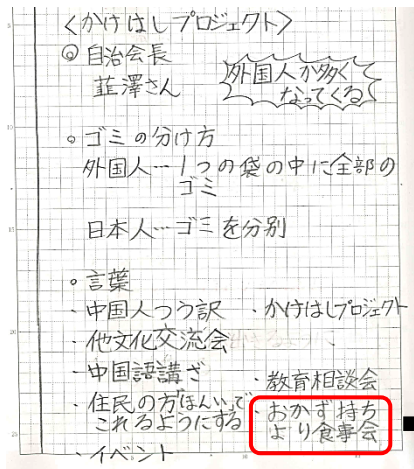 <かけはしプロジェクト>
◎ 自治会長
韮澤さん
外国人が多く
なってくる
○ ゴミの分け方
外国人…1つの袋の中に全部の
ゴミ
日本人…ゴミを分別
○ 言葉
・中国人つう訳
・かけはしプロジェクト
・他文化交流会
・中国語講ざ
・教育相談会
・住民の方がほんいで
これるようにする
・おかず持ち
より食事会
・イベント
5
10
15
20
25